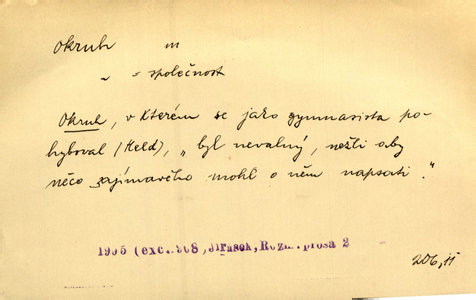 okruh m
~ = společnost
Okruh, v kterém se jako gymnasista po-
hyboval (Held), „byl nevalný, nežli aby
něco zajímavého mohl o něm napsati."
1905 (exc. 968, Jirásek, Rozm. prosa 2
206, II